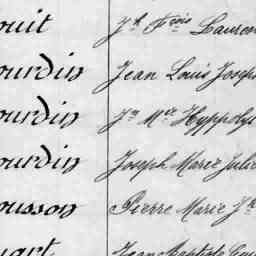 ouit Jh Fçois Lauren
ourdin Jean Louis Josep
ourdin Jn Mce Hyppoly
ourdin Joseph Marie Julie
ousson Pierre Marie Jh
uart Jean Baptiste